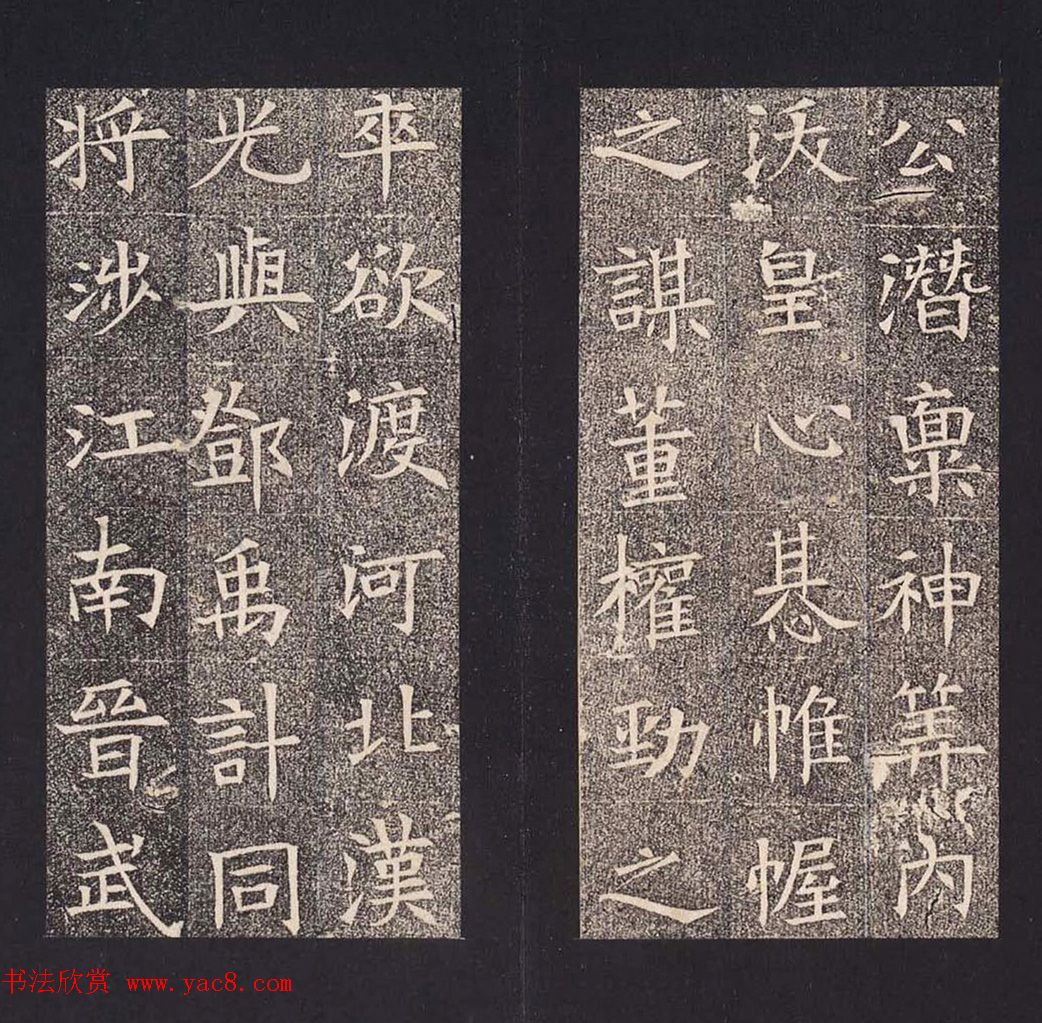 公潛稟神筭內
沃皇心惎帷幄
之謀董權勁之
卒欲渡河北漢
光與鄧禹計同
将涉江南晉武
书法欣赏 www.yac8.com